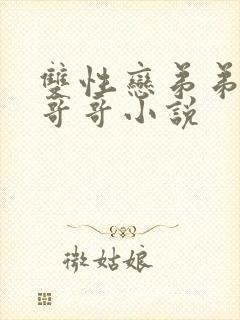 雙性戀弟弟
哥哥小說
微姑娘